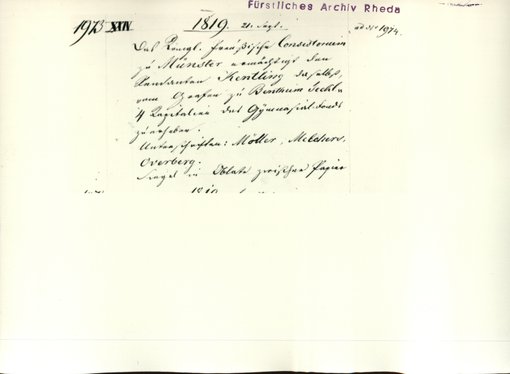 Fürstliches Archiv Rheda
1973 XXIV. 1819. 21. Sept. ad No 1974.
Das Königl. Preußische Consistorium
zu Münster ermächtigt den
Rendanten Kentling daselbst,
vom Grafen zu Bentheim Teckl.
4 Kapitalien des Gymnasial-Fonds
zu erheben.
Unterschriften: Möller, Melchers,
Overberg.
Siegel in Oblate zwischen Papier